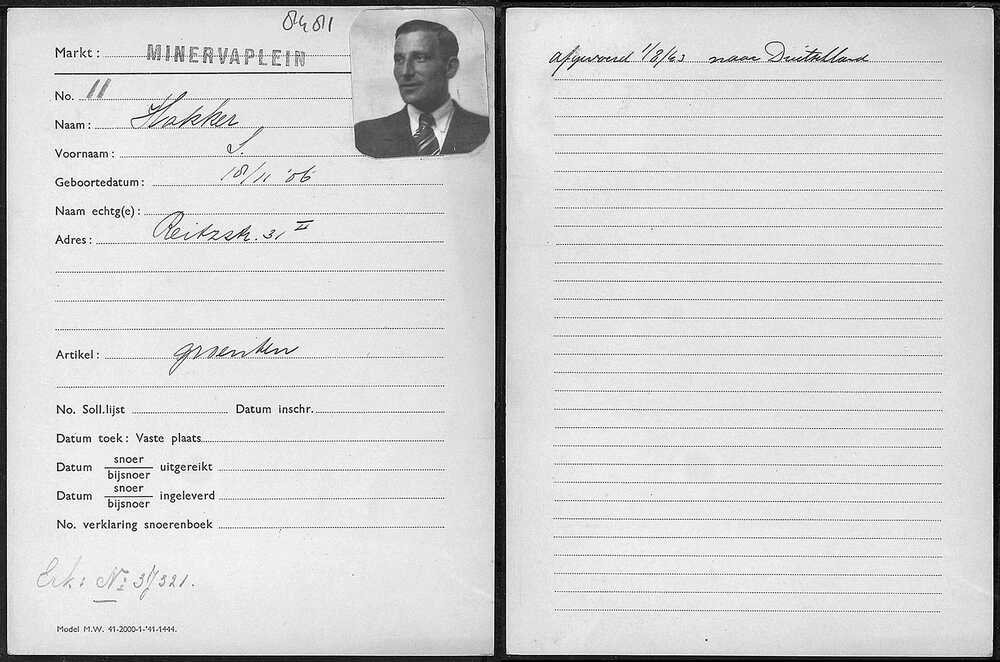 8481
Markt: MINERVAPLEIN
No. 11
Naam: Hakker
Voornaam: S.
Geboortedatum: 18/11 '06
Naam echtg(e):
Adres: Reitzstr. 31 II
Artikel: groenten
No. Soll.lijst Datum inschr.
Datum toek: Vaste plaats
Datum snoer/bijsnoer uitgereikt
Datum snoer/bijsnoer ingeleverd
No. verklaring snoerenboek
Erk: No
Model M.W. 41-2000-1-'41-1444.
afgevoerd 1/8/43 naar Duitschland